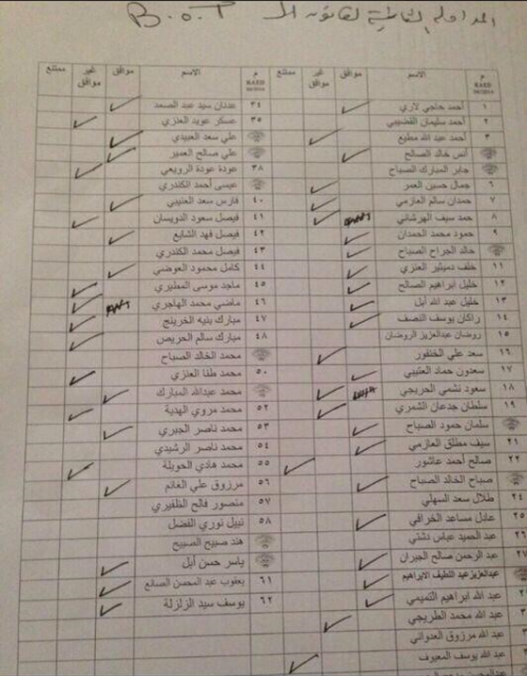 B.O.T
م الاسم موافق غير موافق ممتنع
١ أحمد حاجي لاري
٢ أحمد سليمان القضيبي
٣ أحمد عبد الله مطيع
أنس خالد الصالح
جابر المبارك الصباح
٦ جمال حسين العمر
٧ حمدان سالم العازمي
٨ حمد سيف الهرشاني
٩ حمود محمد الحمدان
خالد الجراح الصباح
١١ خلف دميثير العنزي
١٢ خليل ابراهيم الصالح
١٣ خليل عبد الله أبل
١٤ راكان يوسف النصف
١٥ روضان عبدالعزيز الروضان
١٦ سعد علي الخنفور
١٧ سعدون حماد العتيبي
١٨ سعود نشمي الحريجي
١٩ سلطان جدعان الشمري
سلمان حمود الصباح
٢١ سيف مطلق العازمي
٢٢ صالح أحمد عاشور
صباح الخالد الصباح
٢٤ طلال سعد السهلي
٢٥ عادل مساعد الخرافي
٢٦ عبد الحميد عباس دشتي
٢٧ عبد الرحمن صالح الجيران
عبدالعزيز عبد اللطيف الابراهيم
عبد الله ابراهيم التميمي
عبد الله محمد الطريجي
عبد الله مرزوق العدواني
عبد الله يوسف المعيوف
م الاسم موافق غير موافق ممتنع
٣٤ عدنان سيد عبد الصمد
٣٥ عسكر عويد العنزي
علي سعد العبيدي
علي صالح العمير
٣٨ عودة عودة الرويعي
عيسى أحمد الكندري
٤٠ فارس سعد العتيبي
٤١ فيصل سعود الدويسان
٤٢ فيصل فهد الشايع
٤٣ فيصل محمد الكندري
٤٤ كامل محمود العوضي
٤٥ ماجد موسى المطيري
٤٦ ماضي محمد الهاجري
٤٧ مبارك بنيه الخرينج
٤٨ مبارك سالم الحريص
محمد الخالد الصباح
٥٠ محمد طنا العنزي
محمد عبدالله المبارك
٥٢ محمد مروي الهدية
٥٣ محمد ناصر الجبري
٥٤ محمد ناصر الرشيدي
٥٥ محمد هادي الحويلة
٥٦ مرزوق علي الغانم
٥٧ منصور فالح الظفيري
٥٨ نبيل نوري الفضل
هند صبيح الصبيح
ياسر حسن أبل
٦١ يعقوب عبد المحسن الصانع
٦٢ يوسف سيد الزلزلة